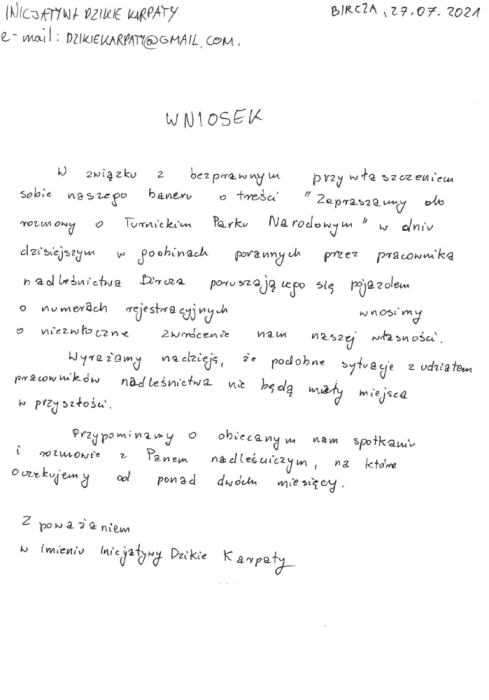 INICJATYWA DZIKIE KARPATY
BIRCZA, 27.07.2021
e-mail: DZIKIEKARPATY@GMAIL.COM.
WNIOSEK
W związku z bezprawnym przywłaszczeniem
sobie naszego baneru o treści "Zapraszamy do
rozmowy o Turnickim Parku Narodowym" w dniu
dzisiejszym w godzinach porannych przez pracownika
nadleśnictwa Bircza poruszającego się pojazdem
o numerach rejestracyjnych wnosimy
o niezwłoczne zwrócenie nam naszej własności.
Wyrażamy nadzieję, że podobne sytuacje z udziałem
pracowników nadleśnictwa nie będą miały miejsca
w przyszłości.
Przypominamy o obiecanym nam spotkaniu
i rozmowie z Panem nadleśniczym, na które
oczekujemy od ponad dwóch miesięcy.
Z poważaniem
w imieniu Inicjatywy Dzikie Karpaty